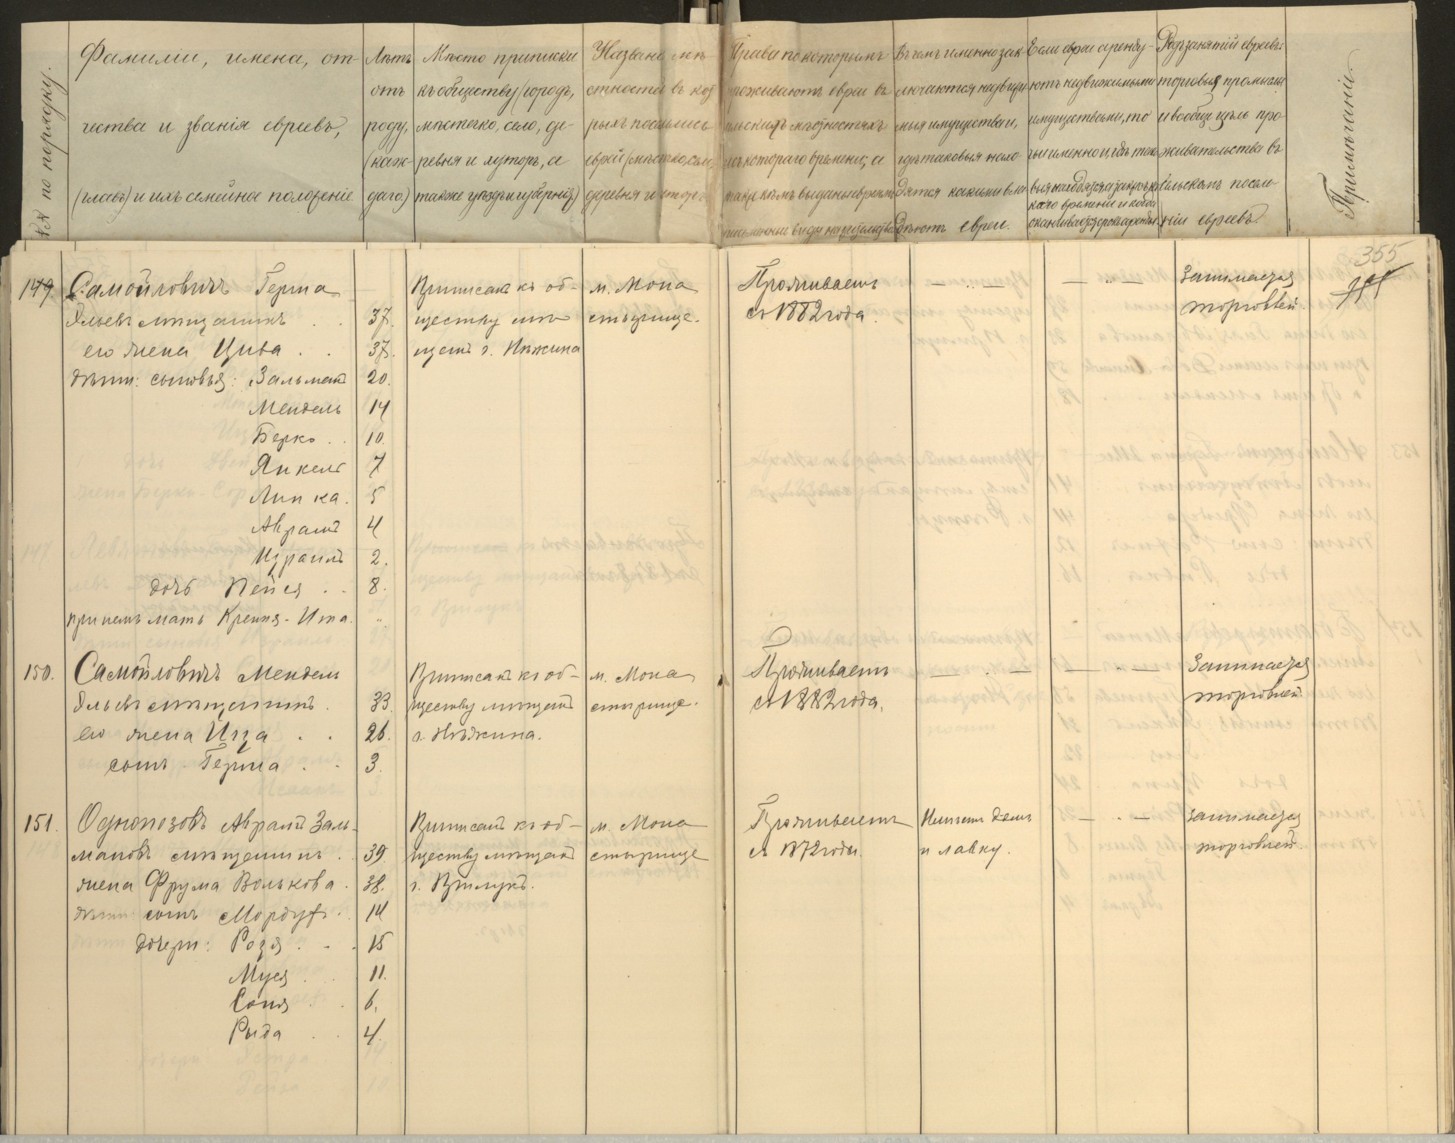 №№ по порядку.
Фамиліи, имена, от-
чества и званія евреевъ,
(главъ) и ихъ семейное положеніе
Лѣтъ
отъ
роду,
(каж-
даго)
Мѣсто приписки
къ обществу (городъ,
мѣстечко, село, де-
ревня и хуторъ, а
также уѣздъ и губернія)
Названіе мѣ-
стностей въ кот
рыхъ поселились
евреи (мѣстечко, село,
деревня и хуторъ
Права по которымъ
проживаютъ евреи въ
сельскихъ мѣстностяхъ
съ котораго времени; а
также кѣмъ выданы евреямъ
письменные виды на жительство
Въ чемъ именно зак-
лючаются недвижи
мыя имущества и,
гдѣ таковыя нахо
дятся какими вла
дѣютъ евреи.
Если евреи аренду-
ютъ недвижимыми
имуществами, то
какого времени и когда
оканчивается срокъ аренды.
Родъ занятій евреевъ
торговыя промыслы
и вообще цѣль про-
живательства въ
сельскомъ посел-
ніи евреевъ.
Примѣчаніе.
355
149. Самойловичъ Герша
Эльевъ мѣщанинъ . . 37.
его жена Цива . . 37.
дѣти: сыновья: Зальманъ 20.
Мендель 14
Берко . . 10.
Янкель 7
Липка . 5
Аврамъ 4
Израиль 2.
дочь Пейся . . 8.
Приписанъ къ об-
ществу мѣ-
щанъ г. Нѣжина
м. Мона
стырище.
Проживаетъ
съ 1882 года.
— „ —
— „ —
Занимается
торговлей.
пріемъ мать Крейня-Ита. „
150. Самойловичъ Мендель
Эльевъ мѣщанинъ . 33.
его жена Изза . . 26.
сынъ - Герша . . 3.
Приписанъ къ об-
ществу мѣщанъ
г. Нѣжина.
м. Мона
стырище.
Проживаетъ
съ 1882 года.
— „ —
— „ —
Занимается
торговлей
151. Однопозовъ Аврамъ Заль-
мановъ мѣщанинъ . 39.
жена Фрума Волькова . 38.
дѣти сынъ Мордухъ . 14
дочери: Розя . . . 15
Муся . . 11.
Соня . . 6.
Рыда . . 4.
Приписанъ къ об-
ществу мѣщанъ
г. Прилукъ.
м. Мона
стырище
Проживаетъ
съ 1872 года.
Имѣетъ домъ
и лавку.
— „ —
занимается
торговлей.